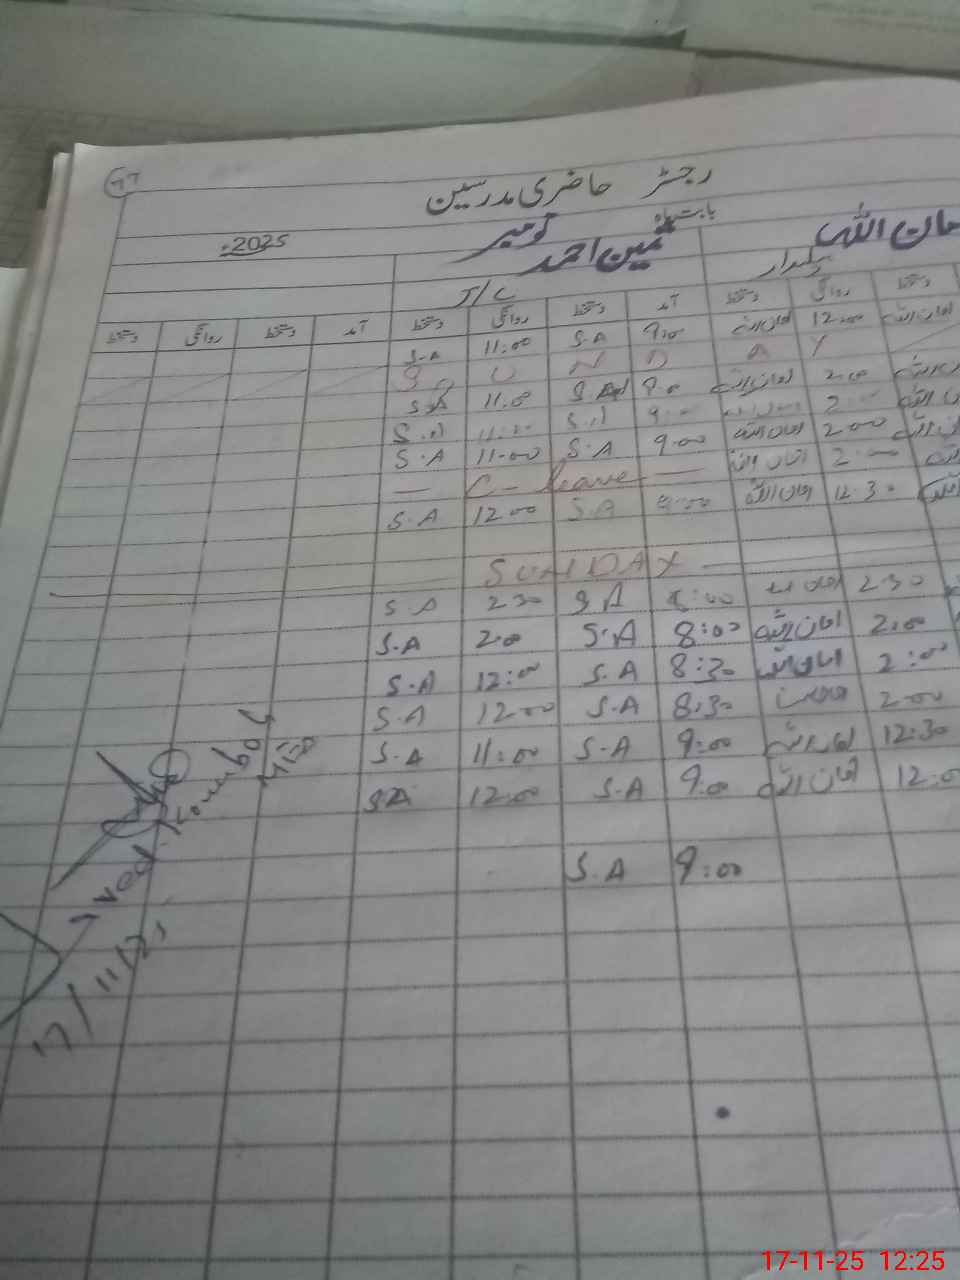 77
رجسٹر حاضری مدرسین
بابت ماہ نومبر 2025
ثمین احمد
چوکیدار
J/C
دستخط روانگی دستخط آمد دستخط روانگی دستخط آمد دستخط روانگی دستخط
امان اللہ 12:00 امان اللہ 9:00 S.A 11:00 S.A
S U N D A Y
2:00 امان اللہ 9:00 S.A 11:00 S.A
2:00 9:00 S.A 11:00 S.A
2:00 امان اللہ 9:00 S.A 11:00 S.A
2:00 امان اللہ — C- Leave —
12:30 امان اللہ 9:00 S.A 12:00 S.A
SUNDAY
2:30 امان اللہ 8:00 S.A 2:30 S.A
2:00 امان اللہ 8:00 S.A 2:00 S.A
2:00 امان اللہ 8:30 S.A 12:00 S.A
2:00 8:30 S.A 12:00 S.A
12:30 امان اللہ 9:00 S.A 11:00 S.A
12:00 امان اللہ 9:00 S.A 12:00 S.A
9:00 S.A
17/11/25
17-11-25 12:25